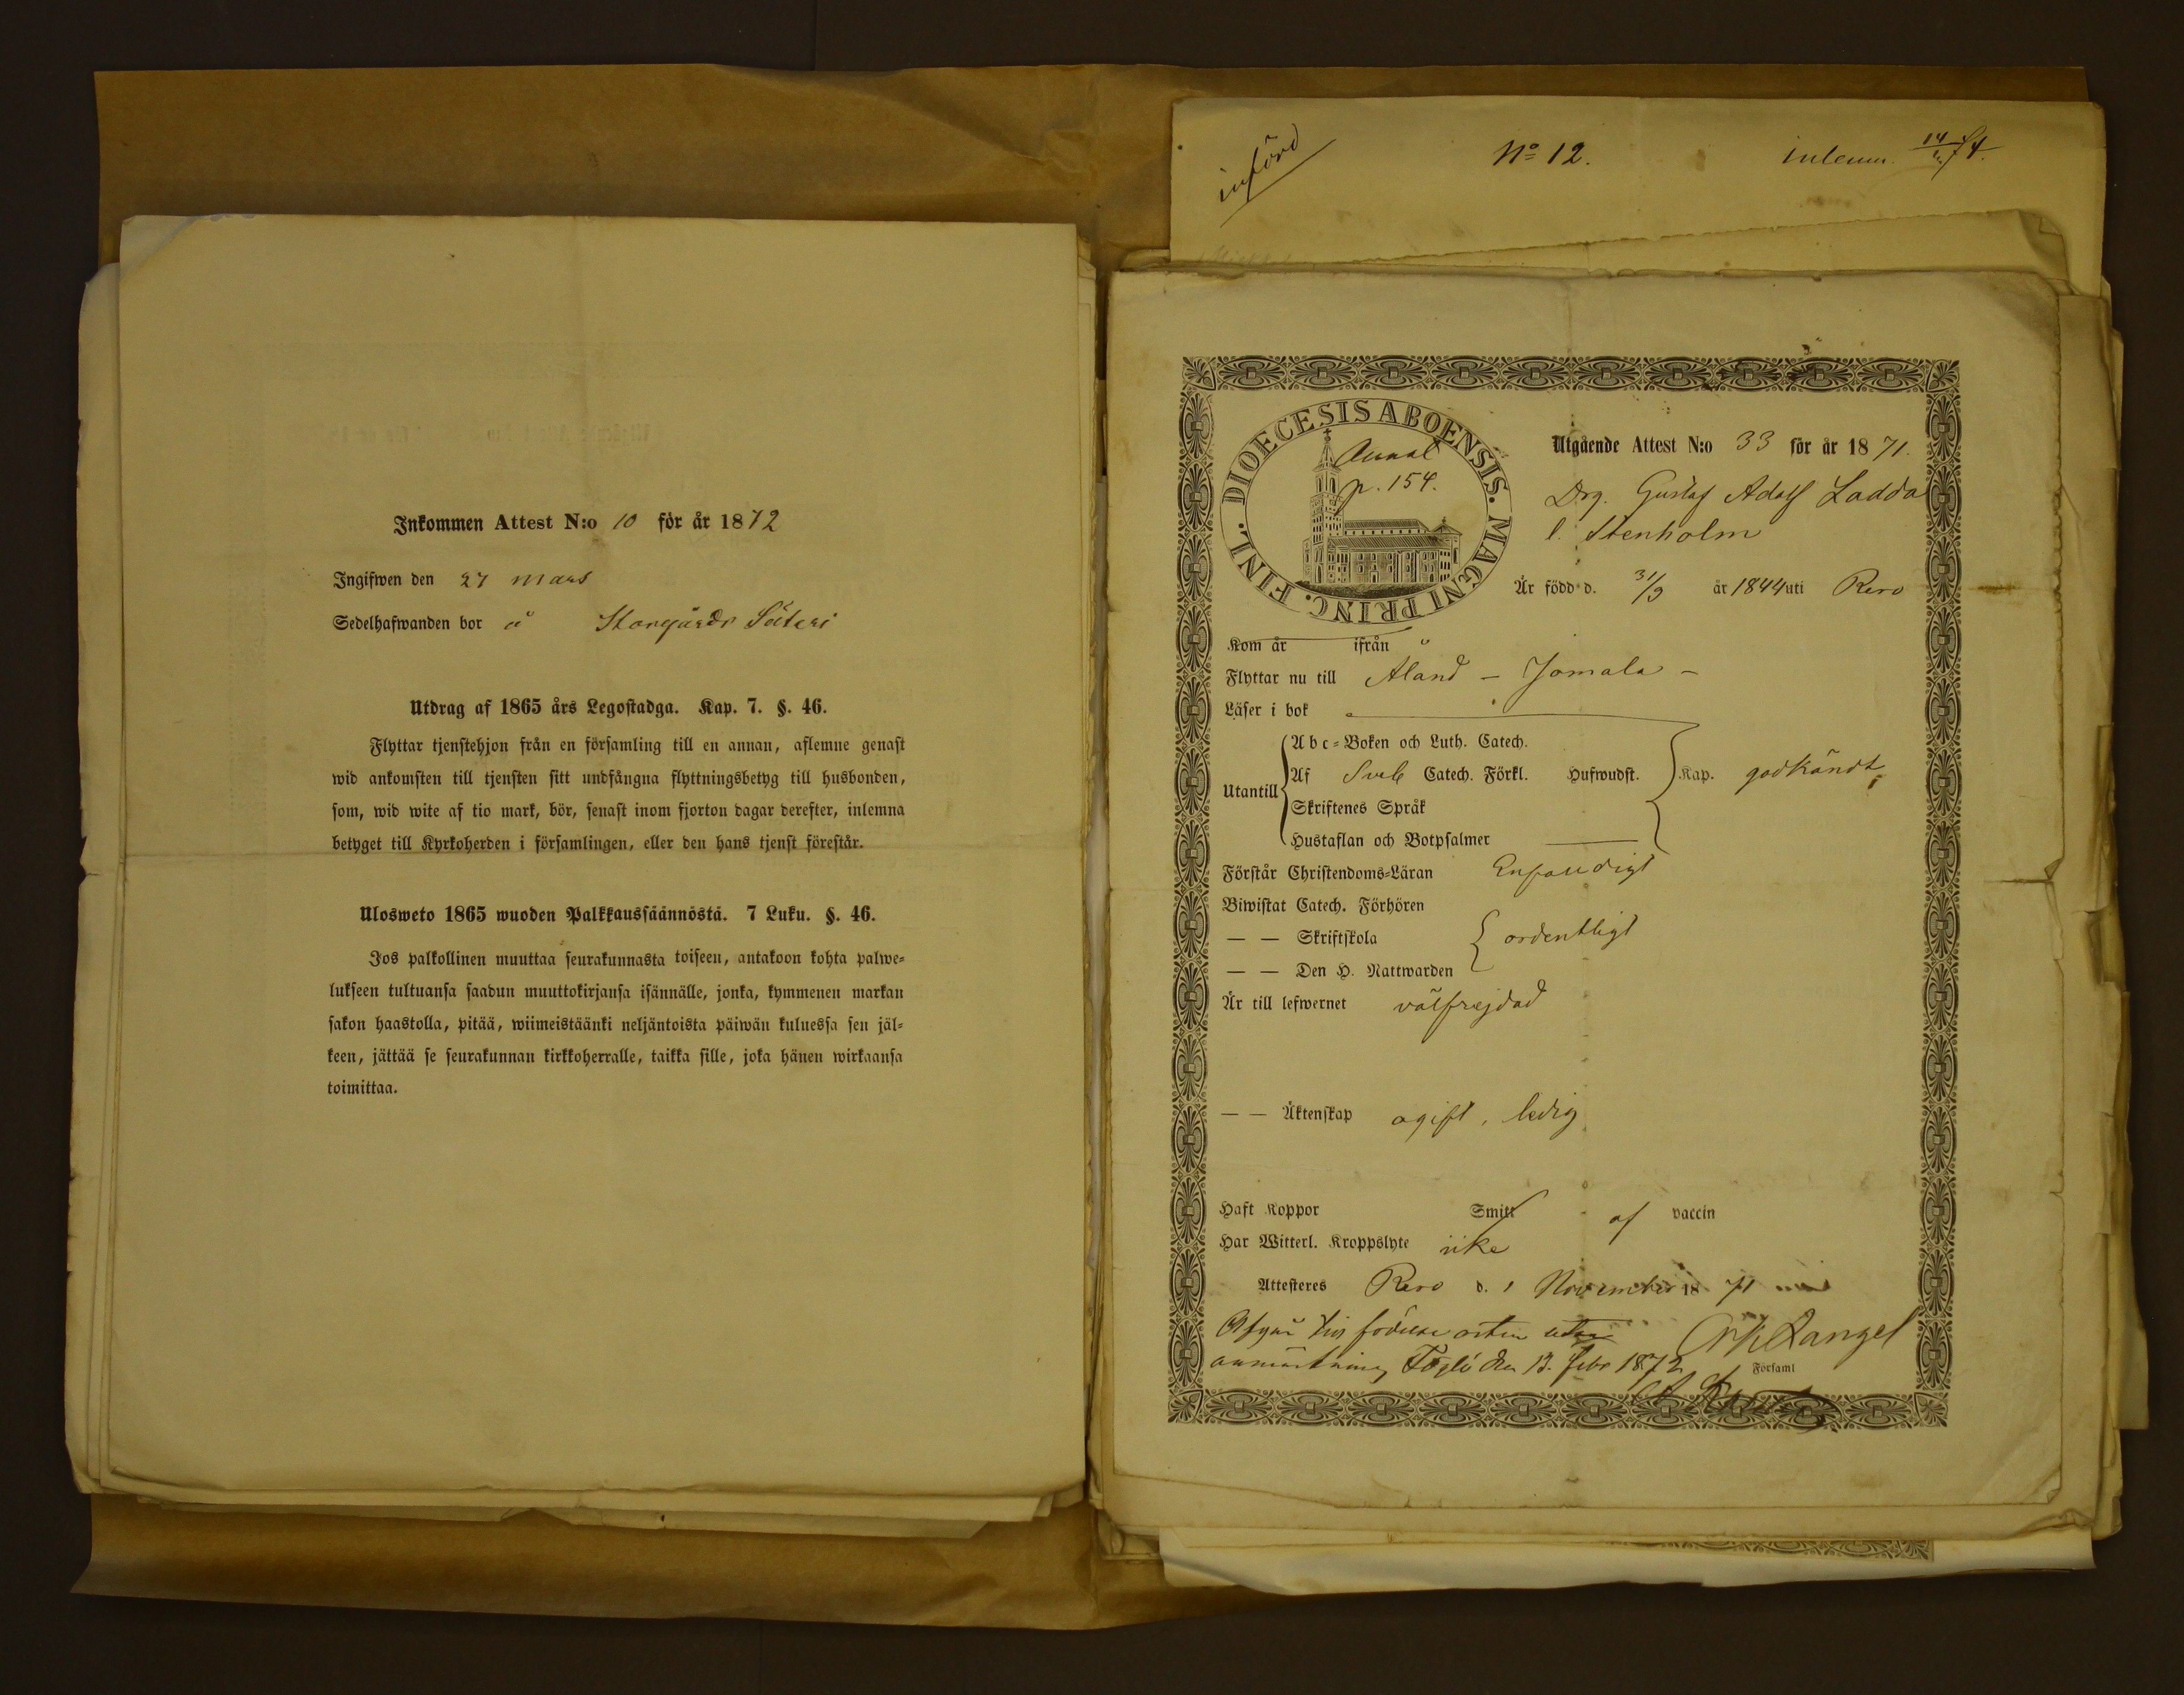 Inkommen Attest N:o 10 för år 1872
Ingifwen den 27 mars
Sedelhafwanden bor å Storgårds Säteri
Utdrag af 1865 års Legostadga. Kap. 7. §. 46.
Flyttar tjenstehjon från en församling till en annan, aflemne genast
wid ankomsten till tjensten sitt undfångna flyttningsbetyg till husbonden,
som, wid wite af tio mark, bör, senast inom fjorton dagar derefter, inlemna
betyget till Kyrkoherden i församlingen, eller den hans tjenst förestår.
Ulosweto 1865 wuoden Palkkaussäännöstä. 7 Luku. §. 46.
Jos palkollinen muuttaa seurakunnasta toiseen, antakoon kohta palwe-
lukseen tultuansa saadun muuttokirjansa isännälle, jonka, kymmenen markan
sakon haastolla, pitää, wiimeistäänki neljäntoista päiwän kuluessa sen jäl-
keen, jättää se seurakunnan kirkkoherralle, taikka sille, joka hänen wirkaansa
toimittaa.
införd
No 12.
inlemn. 74.
DIOECESIS ABOENSIS. MAGNI PRINC. FINL.
p. 154.
Utgående Attest N:o 33 för år 1871.
Drg. Gustaf Adolf Ladda
l. Stenholm
Är född d. 31/3 år 1844 uti Rero
Kom år ifrån
Flyttar nu till Åland - Jomala -
Läser i bok
Utantill
Abc-Boken och Luth. Catech.
Af Sveb Catech. Förkl. Hufwudst. Kap. godkändt,
Skriftenes Språk
Hustaflan och Botpsalmer
Förstår Christendoms-Läran Enfaldigt
Biwistat Catech. Förhören
— — Skriftskola ordentligt
— — Den H. Nattwarden
Är till lefwernet välfrejdad
— — Äktenskap ogift, ledig
Haft Koppor Smitt af vaccin
Har Witterl. Kroppslyte icke
Attesteres Rero d. 1 November 1871
Afgår från födelse orten utan
anmärkning Föglö den 13. Febr 1872
Församl